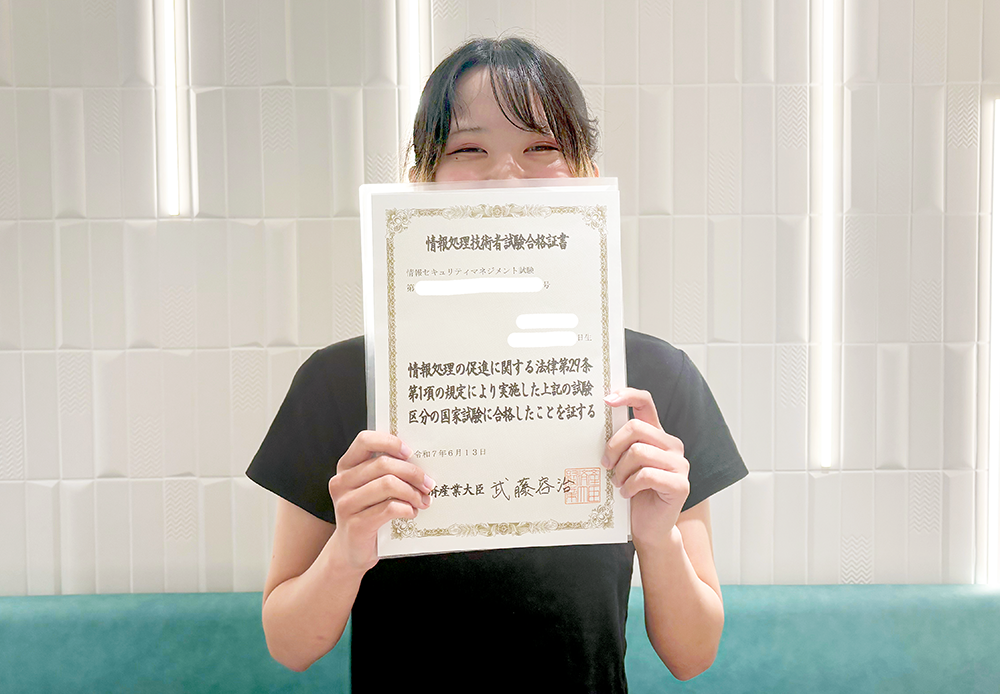 情報処理技術者試験合格証書
情報セキュリティマネジメント試験
第 号
日生
情報処理の促進に関する法律第29条
第1項の規定により実施した上記の試験
区分の国家試験に合格したことを証する
令和7年6月13日
済産業大臣 武藤容治